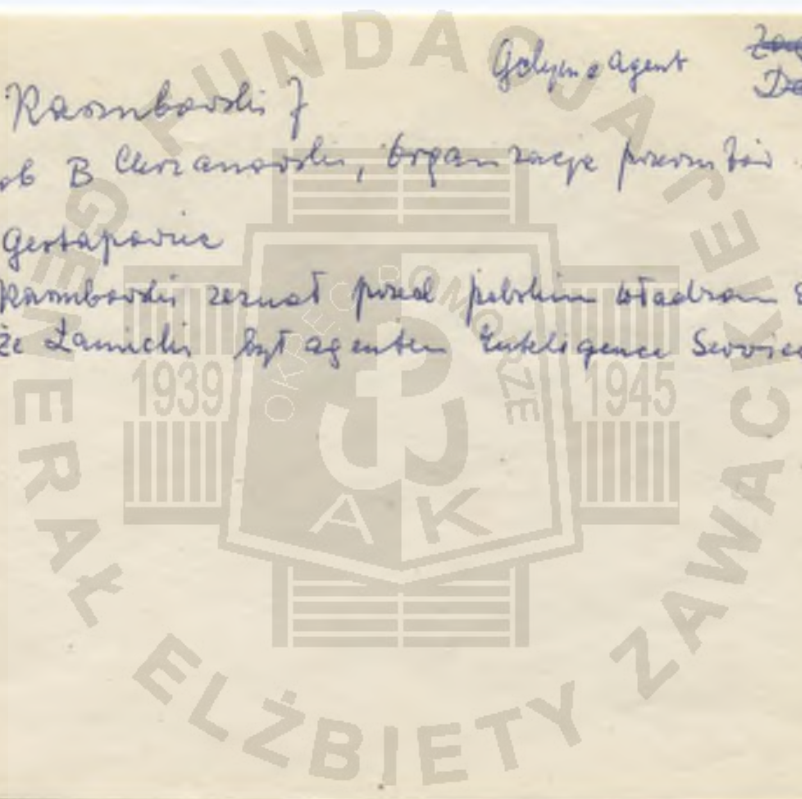 Gdynia Agent
Kaszubowski J
ob B Chrzanowski, Organizacje przerzutów
Gestapowiec
Kaszubowski zeznał przed polskim władzom
że Łanicki był agentem Inteligence Service
FUNDACJA
GENERAŁ ELŻBIETY ZAWACKIEJ
OKRĘG POMORZE
1939
1945
AK